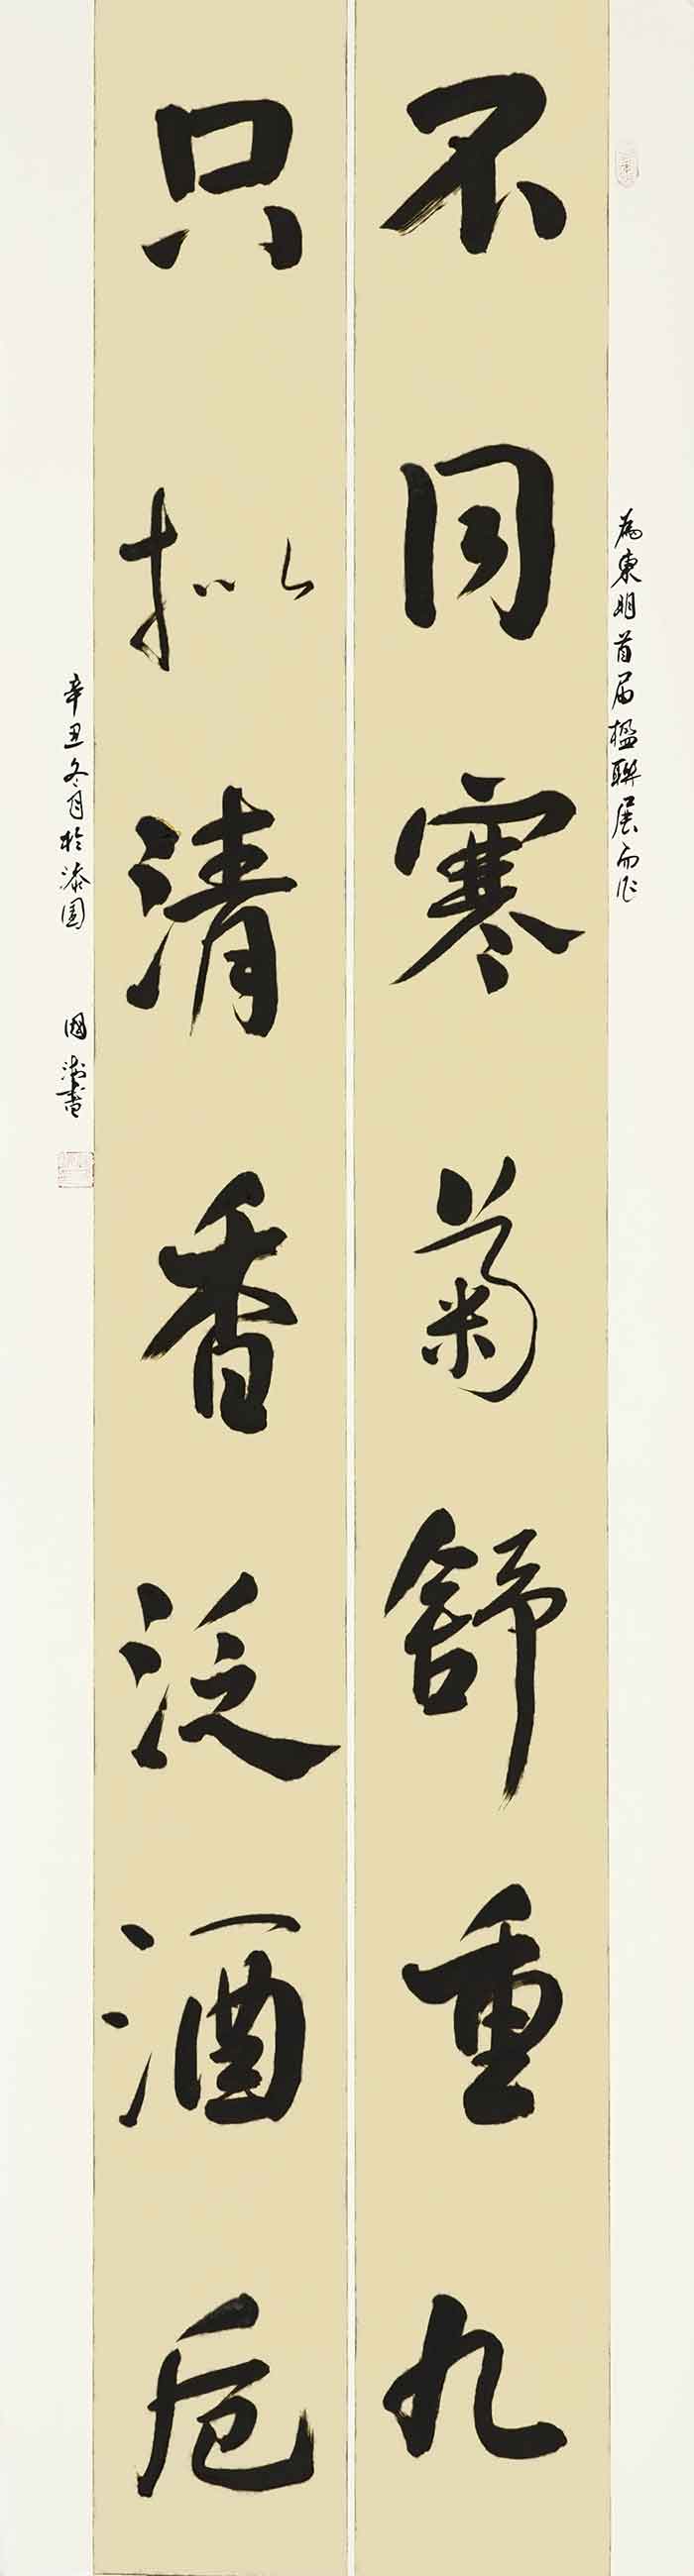 為東明首届楹聯展而作
不同寒菊舒重九
只拟清香泛酒卮
辛丑冬月於漆園
國 書